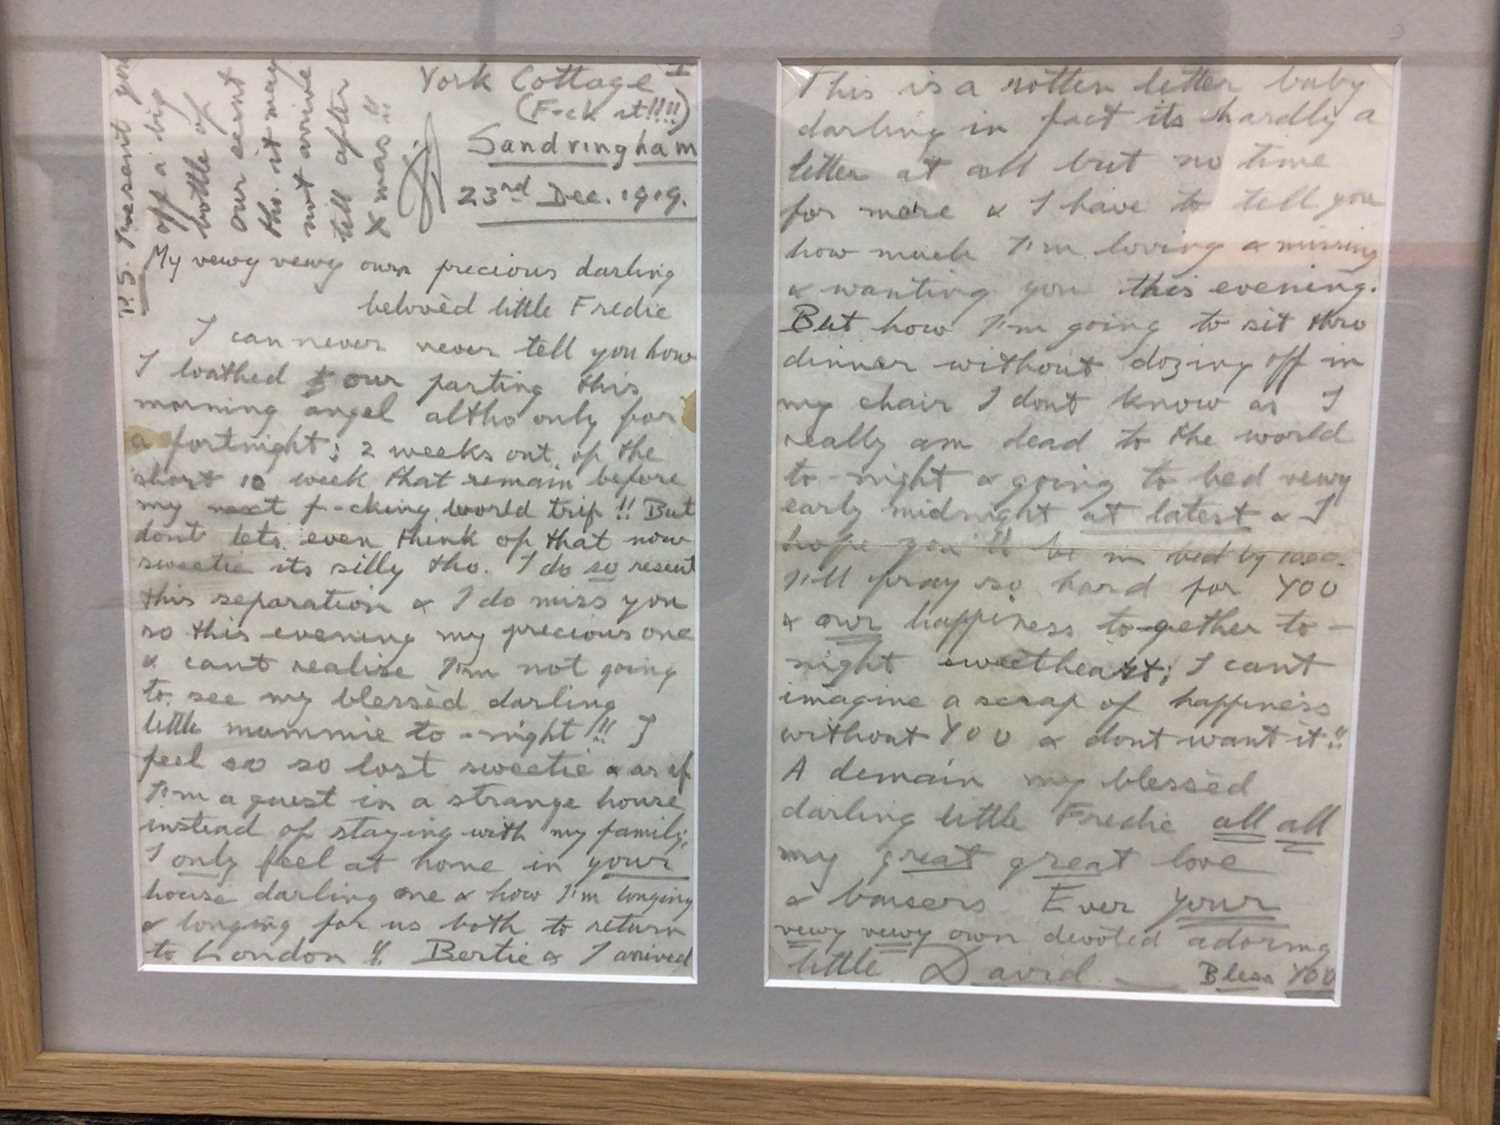 I
York Cottage
(F-ck it!!!!)
Sandringham
23rd Dec. 1919.
P.S. Present you
off a big
bottle of
our scent
this it may
not arrive
till after
Xmas!!
My vewy vewy own precious darling
belovèd little Fredie
I can never never tell you how
I loathed our parting this
morning angel altho only for
a fortnight; 2 weeks out of the
short 10 week that remain before
my next f-cking world trip!! But
dont lets even think of that now
sweetie its silly tho. I do so resent
this separation & I do miss you
so this evening my precious one
& cant realise I'm not going
to see my blessèd darling
little mummie to-night!! I
feel so so lost sweetie & as if
I'm a guest in a strange house
instead of staying with my family;
I only feel at home in your
house darling one & how I'm longing
& longing for us both to return
to London!! Bertie & I arrived
This is a rotten letter baby
darling in fact its hardly a
letter at all but no time
for more & I have to tell you
how much I'm loving & missing
& wanting you this evening.
But how I'm going to sit thro
dinner without dozing off in
my chair I dont know as I
really am dead to the world
to-night & going to bed vewy
early midnight at latest & I
hope you'll be in bed by
I'll pray so hard for YOU
& our happiness to-gether to-
night sweetheart; I cant
imagine a scrap of happiness
without YOU & dont want it!!
A demain my blessèd
darling little Fredie all all
my great great love
& baisers Ever your
vewy vewy own devoted adoring
little David Bless YOU